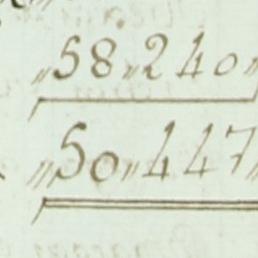 „58„240„
„50„447„